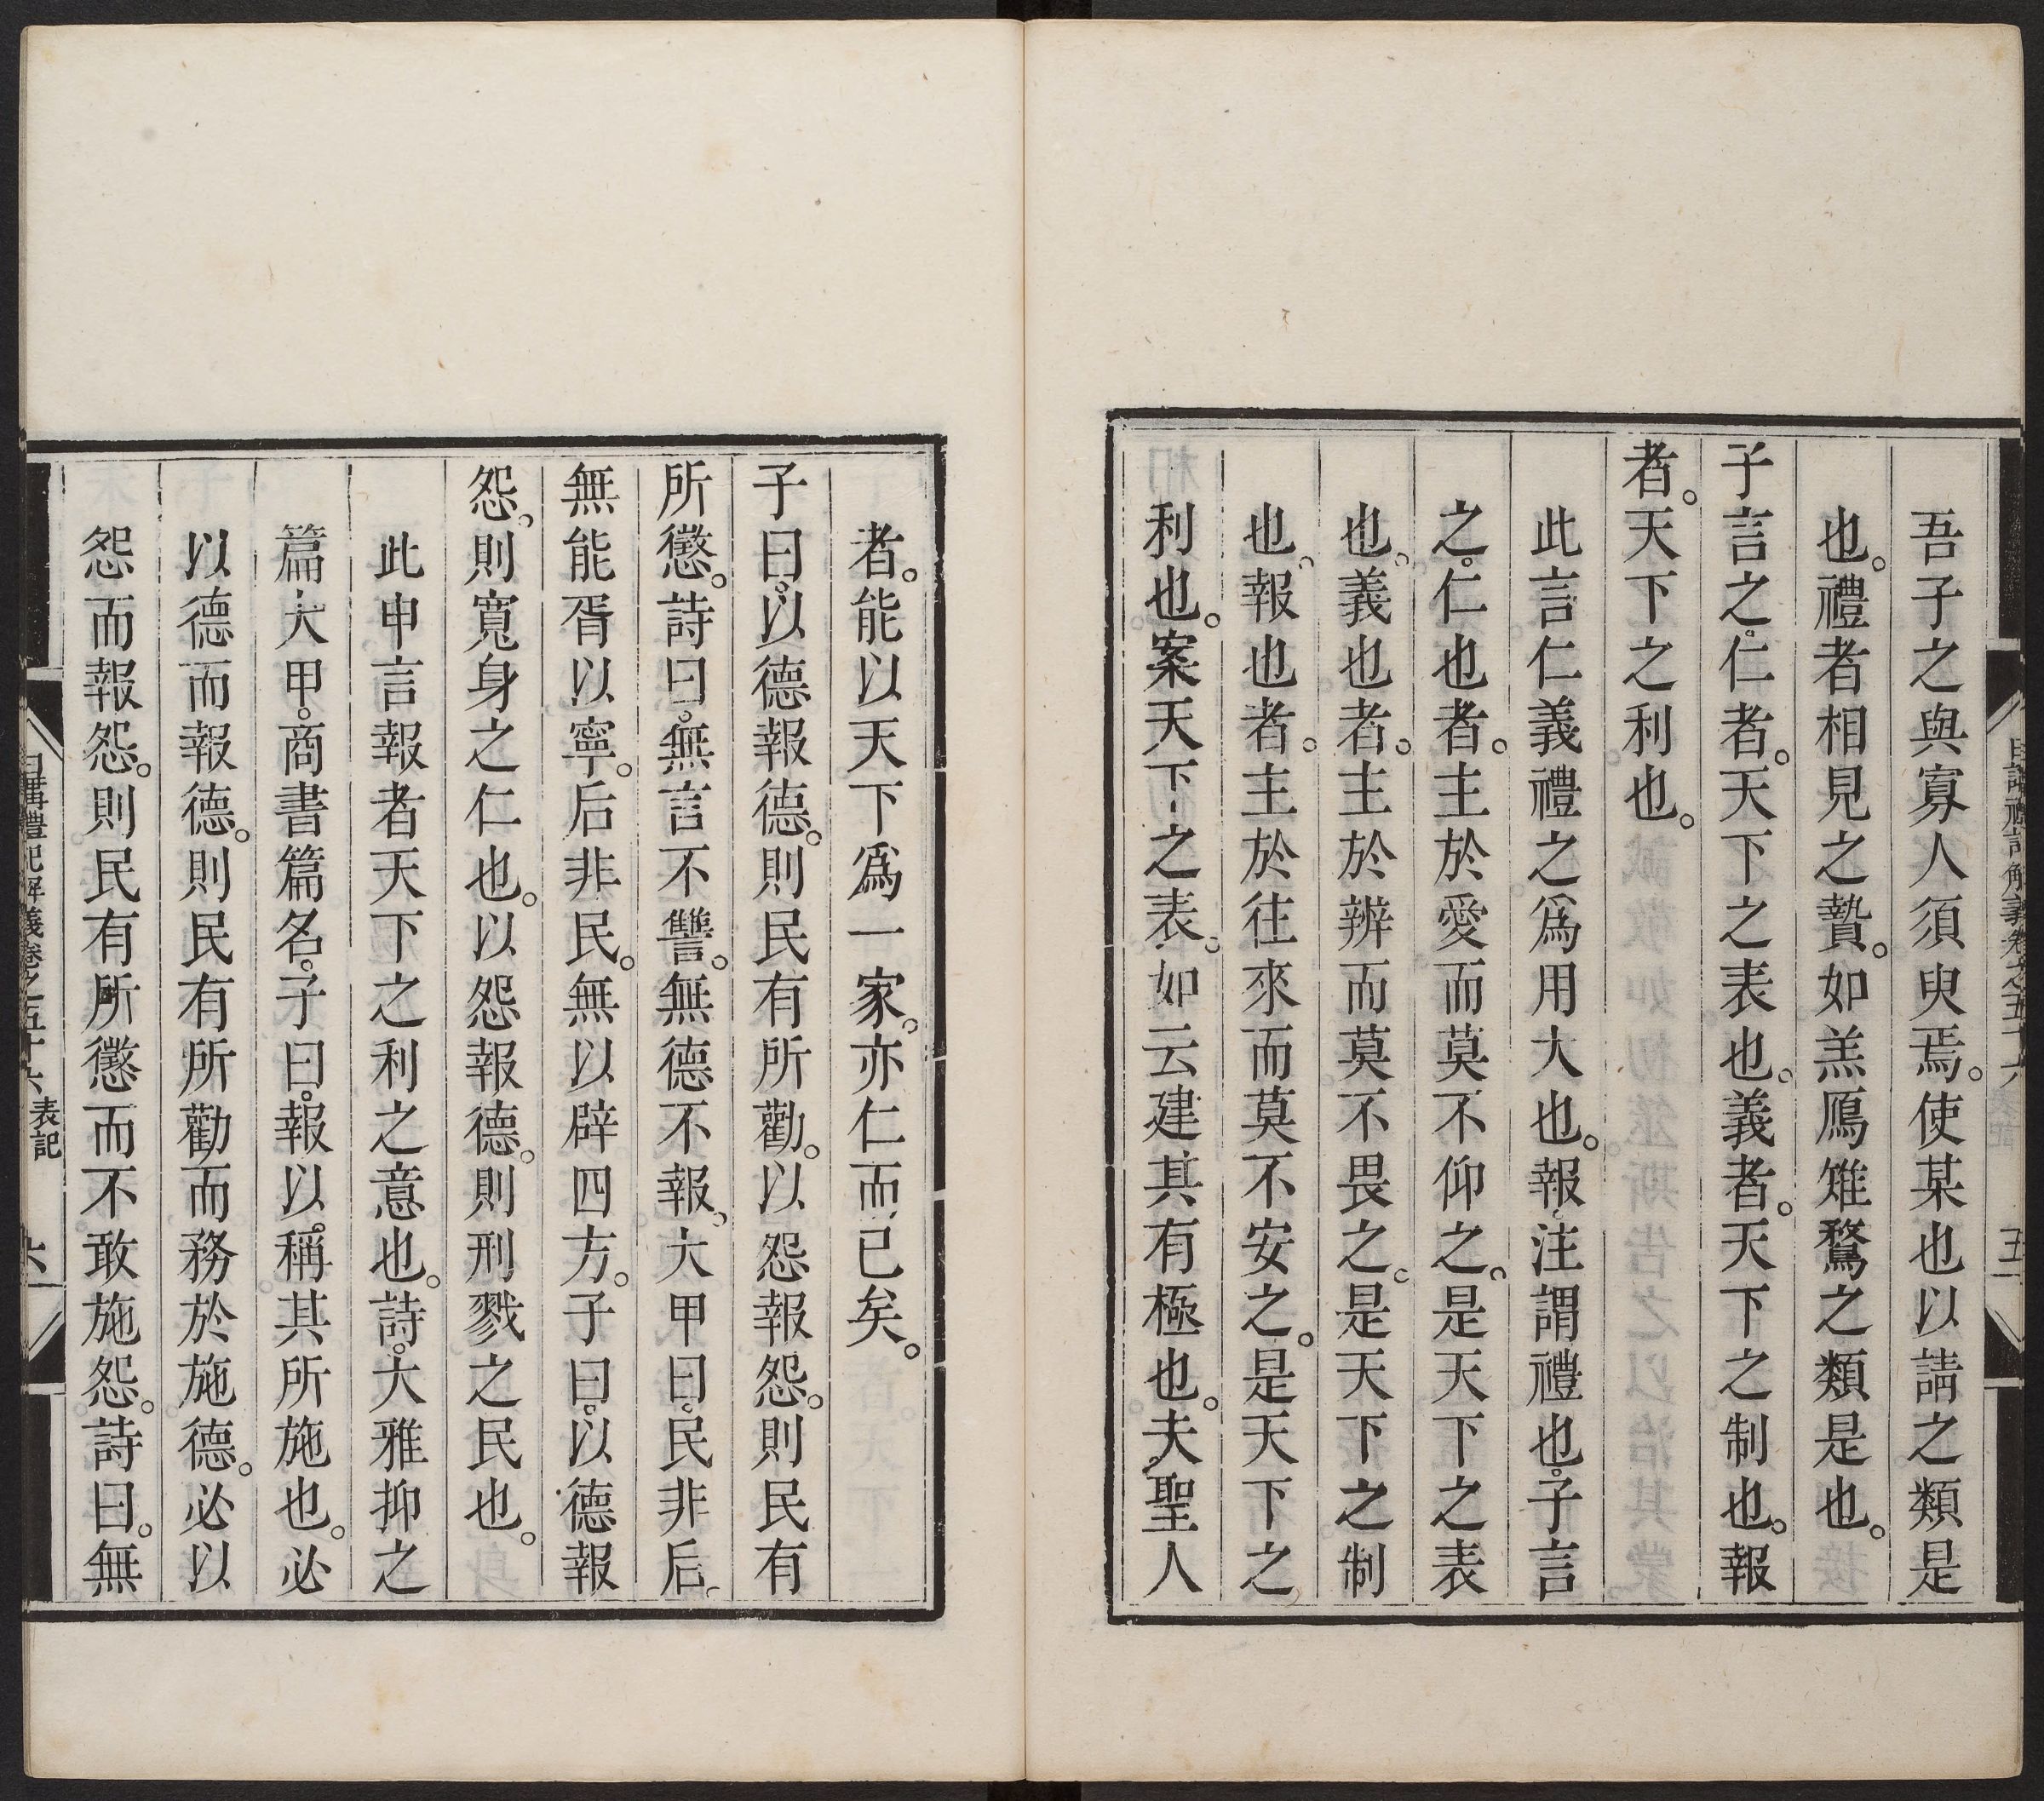 吾子之與寡人須臾焉。使某也以請之類是
也。禮者相見之贄。如羔鴈雉鶩之類是也。
子言之。仁者。天下之表也。義者。天下之制也。報
者。天下之利也。
此言仁義禮之爲用大也。報。注謂禮也。子言
之。仁也者。主於愛而莫不仰之。是天下之表
也。義也者。主於辨而莫不畏之。是天下之制
也。報也者。主於往來而莫不安之。是天下之
利也。案天下之表。如云建其有極也。夫聖人
日講禮記解義卷之五十六 表記 五
者。能以天下爲一家。亦仁而已矣。
子曰。以德報德。則民有所勸。以怨報怨。則民有
所懲。詩曰。無言不讐。無德不報。大甲曰。民非后。
無能胥以寧。后非民。無以辟四方。子曰。以德報
怨。則寬身之仁也。以怨報德。則刑戮之民也。
此申言報者天下之利之意也。詩。大雅抑之
篇。大甲。商書篇名。子曰。報以。稱其所施也。必
以德而報德。則民有所勸而務於施德。必以
怨而報怨。則民有所懲而不敢施怨。詩曰。無
日講禮記解義卷之五十六 表記 六